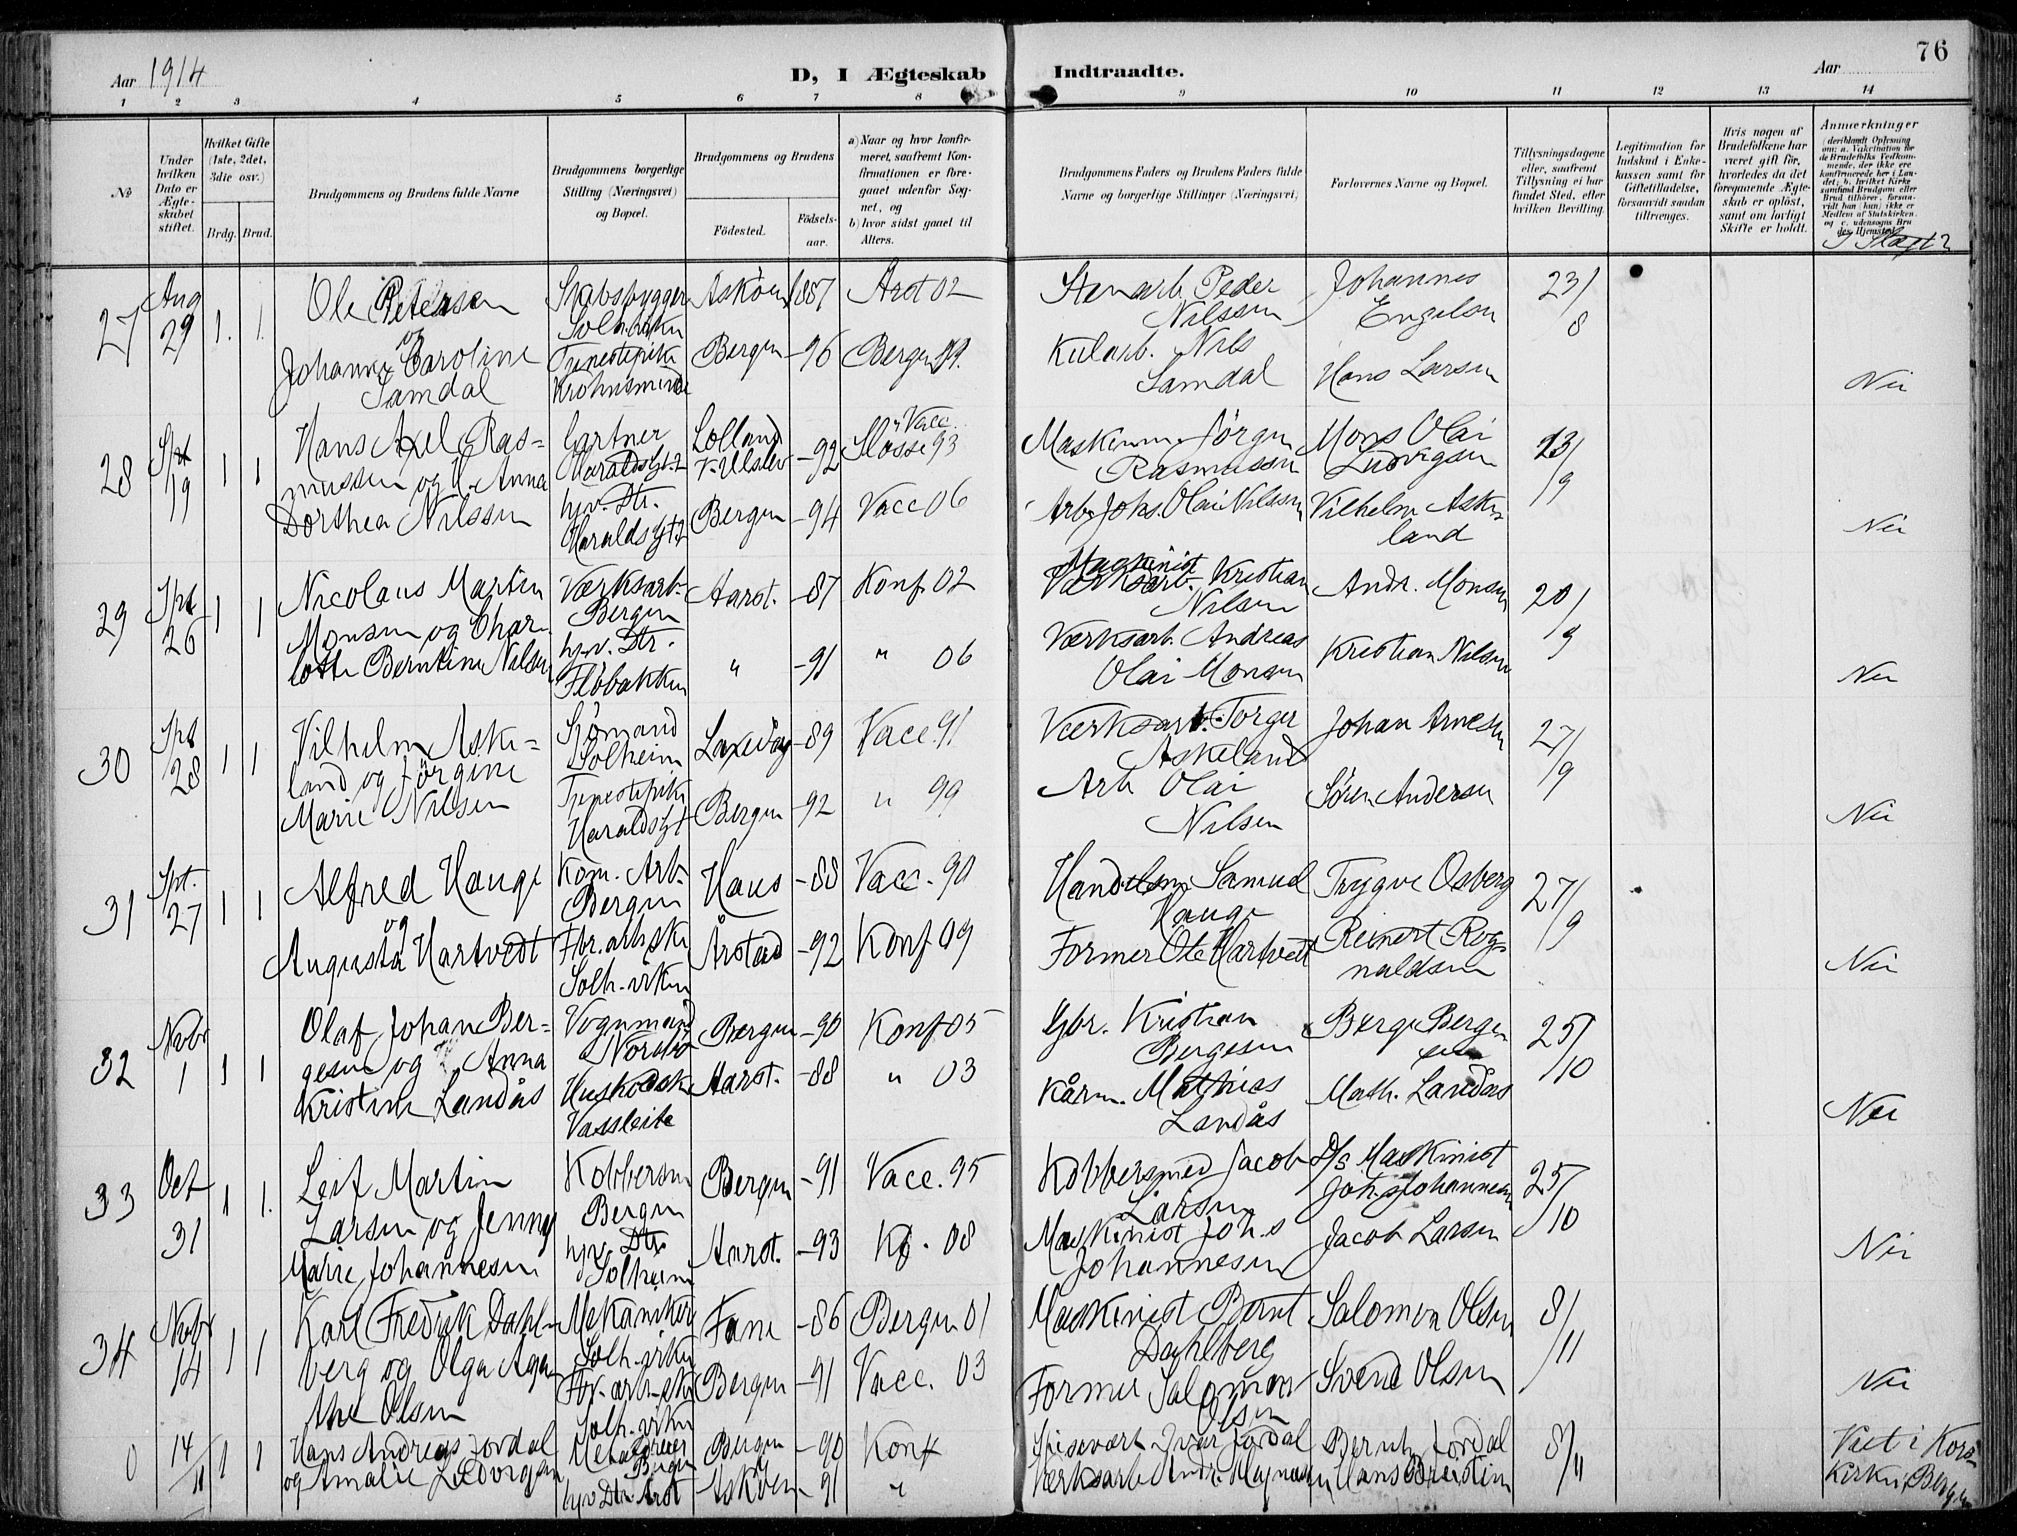 76
Aar 1914
D, I Ægteskab Indtraadte.
Aar
1 2 3 4 5 6 7 8 9 10 11 12 13 14
No
Under hvilken Dato er Ægteskabet stiftet.
Hvilket Gifte (1ste, 2det, 3die osv.)
Brdg. Brud.
Brudgommens og Brudens fulde Navne
Brudgommens borgerlige Stilling (Næringsvei) og Bopæl.
Brudgommens og Brudens
Fødested.
Fødselsaar.
a) Naar og hvor konfirmeret, saafremt Konfirmationen er foregaaet udenfor Sognet, og
b) hvor sidst gaaet til Alters.
Brudgommens Faders og Brudens Faders fulde Navne og borgerlige Stillinger (Næringsvei)
Forlovernes Navne og Bopæl.
Tillysningsdagene eller, saafremt Tillysning ei har fundet Sted, efter hvilken Bevilling.
Legitimation for Indskud i Enkekassen samt for Giftetilladelse, forsaavidt saadan tiltrænges.
Hvis nogen af Brudefolkene har været gift før, hvorledes da det foregaaende Ægteskab er opløst, samt om lovligt Skifte er holdt.
Anmærkninger
(deriblandt Oplysning om: a. Vakcination for de Brudefolks Vedkommende, der ikke ere konfirmerede her i Landet; b. hvilket Kirkesamfund Brudgom eller Brud tilhører, forsaavidt han (hun) ikke er Medlem af Statskirken, og c. udensogns Brudes Hjemsted.)
I Slægt?
27 Aug 29 1. 1. Ole Petersen Askøen 1887 Arst 02 Stenarb. Peder Nilssen Johannes Engelsen 23/8
og Johanna Caroline Samdal Tjenestepike Krohnsminde Bergen -96 Bergen Kularb. Nils Samdal Hans Larsen Nei
28 Spt 19 1 1 Hans Axel Rasmussen og H. Anna Gartner Haraldsgt. 2 Lolland -92 Vacc. 93 Maskinm. Jörgen Rasmussen Mons Olai Ludvigsen 13/9
Dorthea Nilssen hjv. Dtr. Haraldsgt. 2 Bergen -94 Vacc 06 Arb. Johs. Olai Nilssen Vilhelm Askeland Nei
29 Spt 26 1 1 Nicolaus Martin Monsen og Charlotte Berntine Nilsen Værksarb. Bergen Aarst. -87 Konf. 02 Maskinist Kristian Nilsen Andr. Monsen 20/9
hjv. Dtr. Fløbakken " -91 " 06 Værksarb. Andreas Olai Monsen Kristian Nilsen Nei
30 Spt 28 1 1 Vilhelm Askeland og Jörgine Marie Nilsen Sjömand Solheim Laxevåg -89 Vacc. 91. Værksarb. Torger Askeland Johan Arnesen 27/9
Tjenestepike Haraldsgt Bergen -92 " 99 Arb Olai Nilsen Søren Andersen Nei
31 Spt. 27 1 1 Alfred Hauge Kom. Arb. Bergen Haus -88 Vacc. 90 Handelsm. Samuel Hauge Trygve Osberg 27/9
og Augusta Hartvedt Fbr. arbske Solh-viken Årstad -92 Konf 09 Former Ole Hartvedt Reinert Rognaldsen Nei
32 Novbr 1 1 1 Olaf Johan Bergesen og Anna Kristine Landås Vognmand Bergen -90 Konf 05 Gbr. Kristian Bergesen Berge Bergesen 25/10
Vassleite Aarst. -88 " 03 Kårm. Mathias Landås Math. Landås Nei
33 Oct 31 1 1. Leif Martin Larsen og Jenny Marie Johannesen Kobbersm Bergen Bergen -91 Vacc. 95 Kobbersmed Jacob Larsen D/S Maskinist Johs Johannesen 25/10
hjv. Dtr. Solheim Aarst. -93 Kf. 08 Maskinist Joh.s Johannesen Jacob Larsen Nei
34 Novbr 14 1 1 Karl Fredrik Dahlberg og Olga Agathe Olsen Mekaniker Solh-viken Fane -86 Bergen 01 Maskinist Bernt Dahlberg Salomon Olsen 8/11
Fbr-arb-ske Solh-viken Bergen -91 Vacc. 03 Former Salomon Olsen Svend Olsen Nei
0 14/11 1 1 Hans Andreas Jordal Bergen Bergen -90 Konf Spisevært Ivar Jordal Bernt Jordal 8/11 Viet i Kors-
og Amalie hjv Dtr Arst Askøen -91 " Værksarb Andr. Magnussen Hans kirken, Bergen